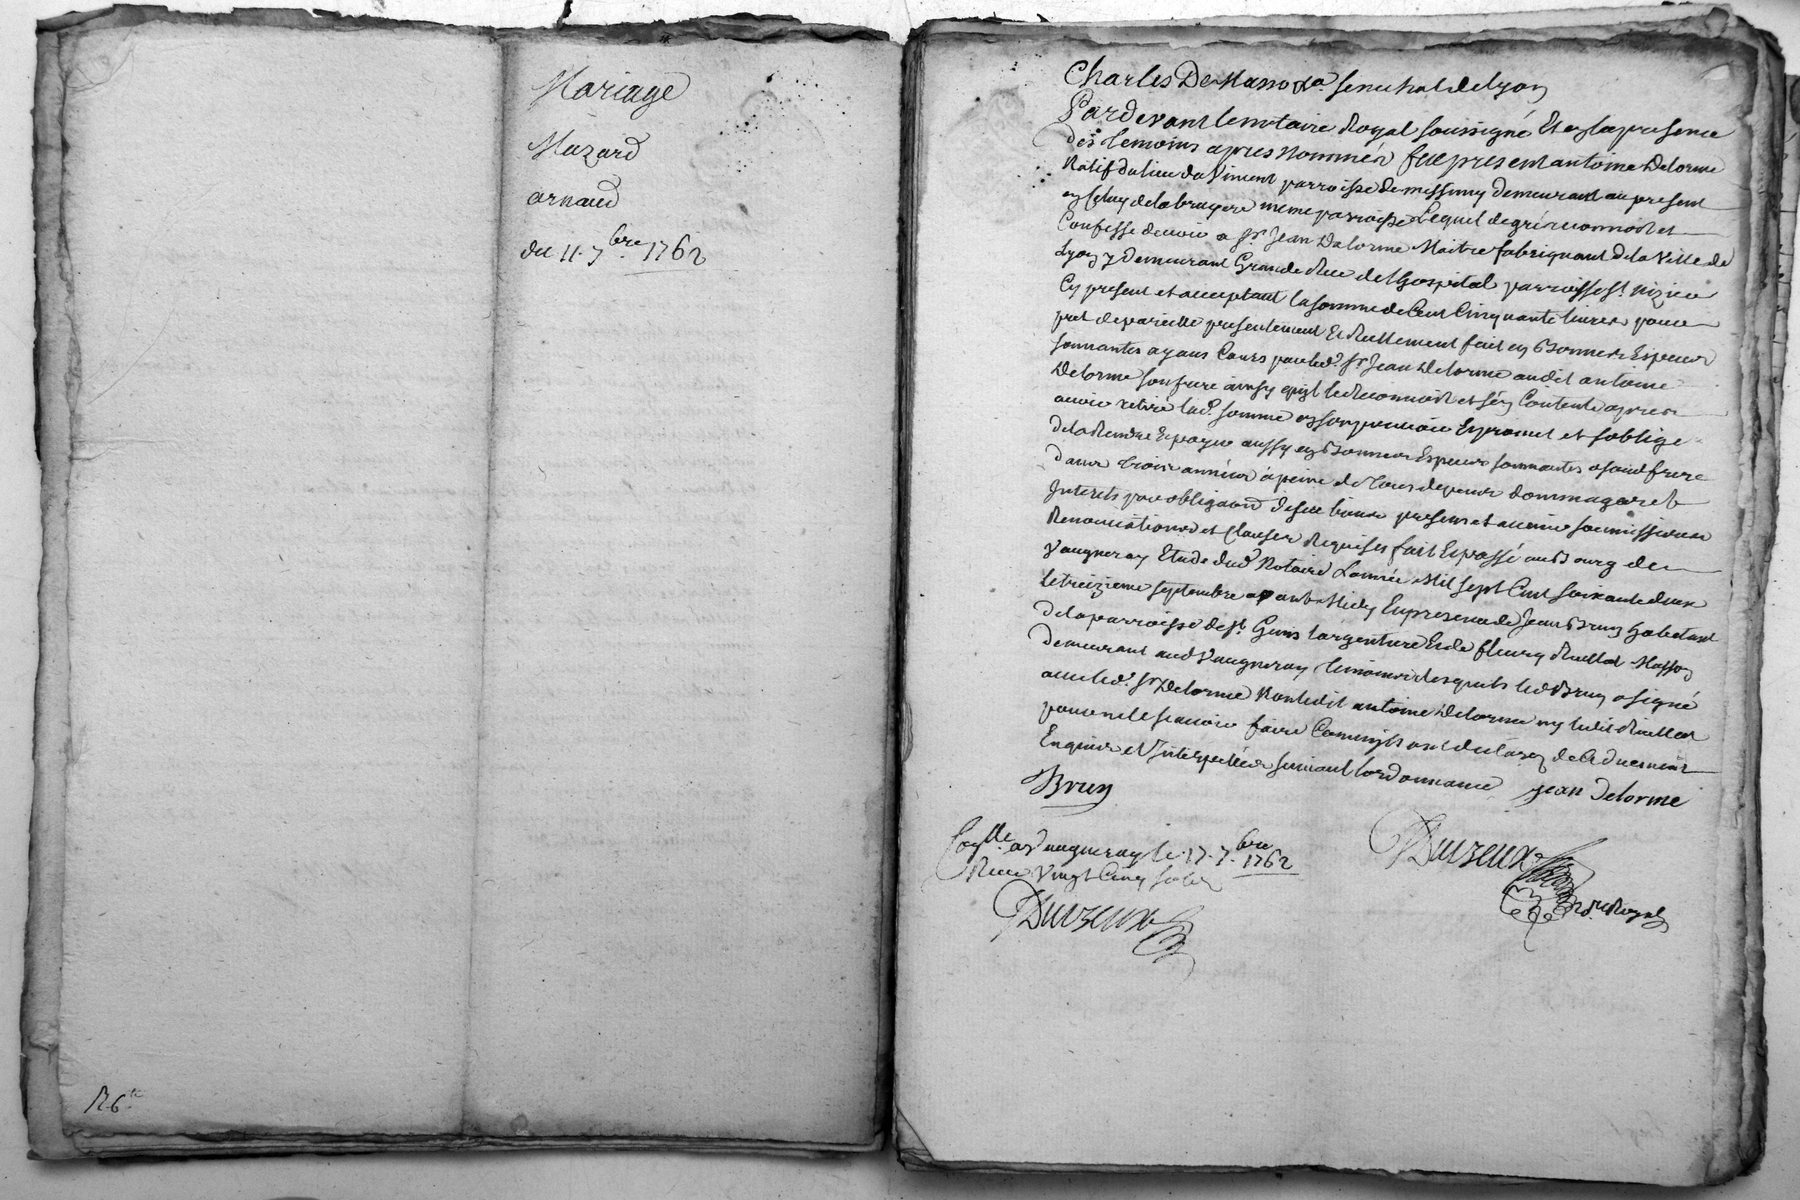 Mariage
Mazard
arnaud
du 11. 7.bre 1762
R 6 te
Charles De Masso &a. senechal de Lyon
Pardevant le notaire Royal soussigné Et en la presence
des temoins apres nommés fut present antoine Delorme
Natif du lieu du parroisse de messimy demeurant au present
en Celuy de la bruyere meme parroisse Lequel de gré reconnoit et
Confesse devoir a Sr Jean Delorme Maitre fabriquant de la Ville de
Lyon y demeurant Grande Rue de l'hospital parroisse St. Nizier
Cy present et acceptant la somme de Cent Cinquante livres pour
pret de pareille presentement Et Reellement fait en Bonnes Especes
sonnantes ayans Cours par led. Sr Jean Delorme audit antoine
Delorme son frere ainsy quil le Reconnoit et sen Contente apres
avoir retiré lad. somme en son pouvoir Et promet et s'oblige
de la Rendre Et payer aussy en Bonnes Especes sonnantes a sond frere
dans trois années à peine de tous depens dommages et
Interets par obligaõn de ses biens presens et avenir soumissions
Renonciations et Clauses Requises fait Et passé au Bourg de
Vaugneray Etude dud Notaire L'année Mil sept Cent soixante deux
le treizieme septembre avant Midy En presence de Jean Brun habitant
de la parroisse de St. Genis l'argentiere Et de fleury Rullat Masson
demeurant aud Vaugneray temoins lesquels led Brun a signé
avec led. Sr Delorme Non ledit antoine Delorme ny ledit Rullat
pour ne le scavoir faire Comme ils ont declaré de ce duement
Enquis et Interpellés suivant l'ordonnance jean Delorme
Brun
Duvzeux
Nore Royal
Conlle. a Vaugneray le 17. 7.bre 1762
Reçu Vingt Cinq sols
Duvzeux